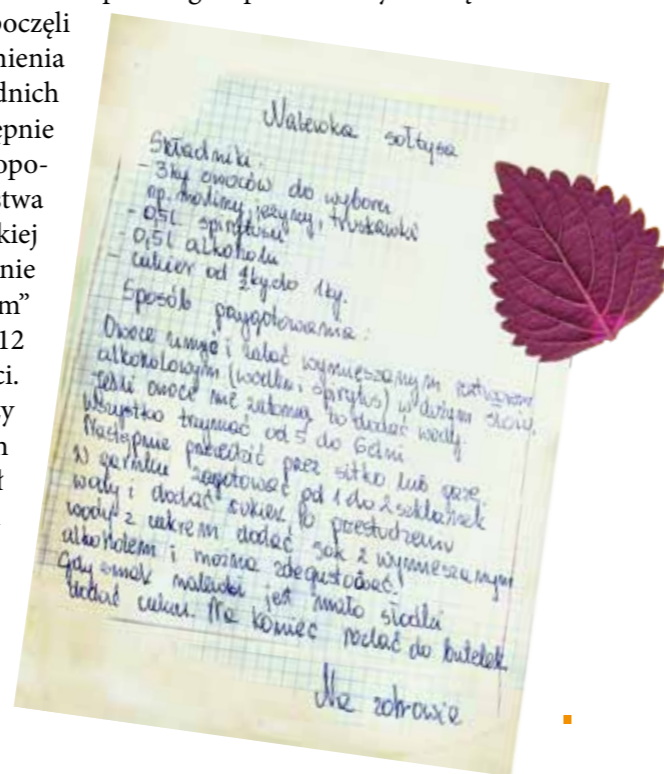 poczęli
nienia
dnich
ępnie
opo-
stwa
kiej
nie
m”
12
ci.
sy
Nalewka sołtysa
Składniki:
- 3kg owoców do wyboru
np. maliny, jeżyny, truskawki
- 0,5l spirytusu
- 0,5l alkoholu
- cukier od ½kg do 1kg.
Sposób przygotowania:
Owoce umyć i zalać wymieszanym roztworem
alkoholowym (wódka, spirytus) w dużym słoju.
Jeśli owoce nie zatoną to dodać wody.
Wszystko trzymać od 5 do 6 dni.
Następnie przecedzić przez sitko lub gazę.
W garnku zagotować od 1 do 2 szklanek
wody i dodać cukier, po przestudzeniu
wody z cukrem dodać sok z wymieszanym
alkoholem i można zdegustować.
Gdy smak nalewki jest mało słodki
dodać cukru. Na koniec rozlać do butelek
Na zdrowie